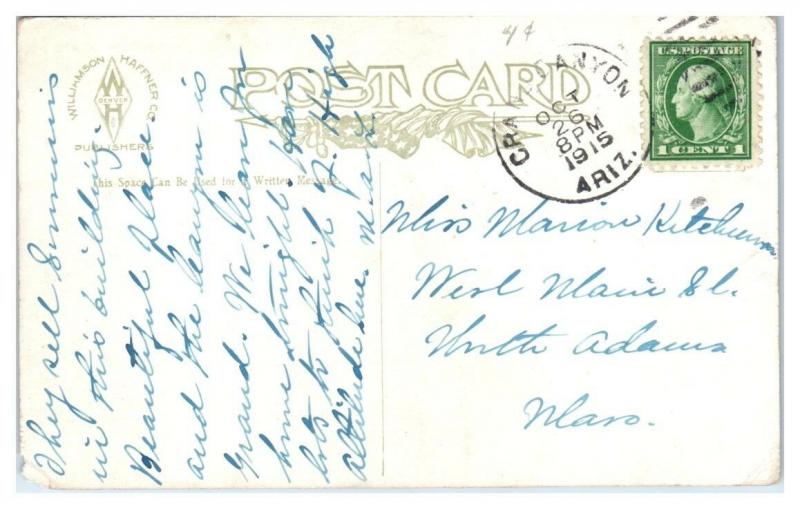 4¢
WILLIAMSON HAFFNER CO.
W H
DENVER
PUBLISHERS
POST CARD
This Space Can Be Used for a Written Message.
GRAND CANYON
OCT 26
8 PM
1915
ARIZ.
U.S. POSTAGE
1 CENT 1
They sell
in this building.
Beautiful Place.
and the canyon is
grand. We leave for
home tonight. Have
lots to High
altitude here.
Miss Marion Ketchum
West Main St.
North Adams
Mass.